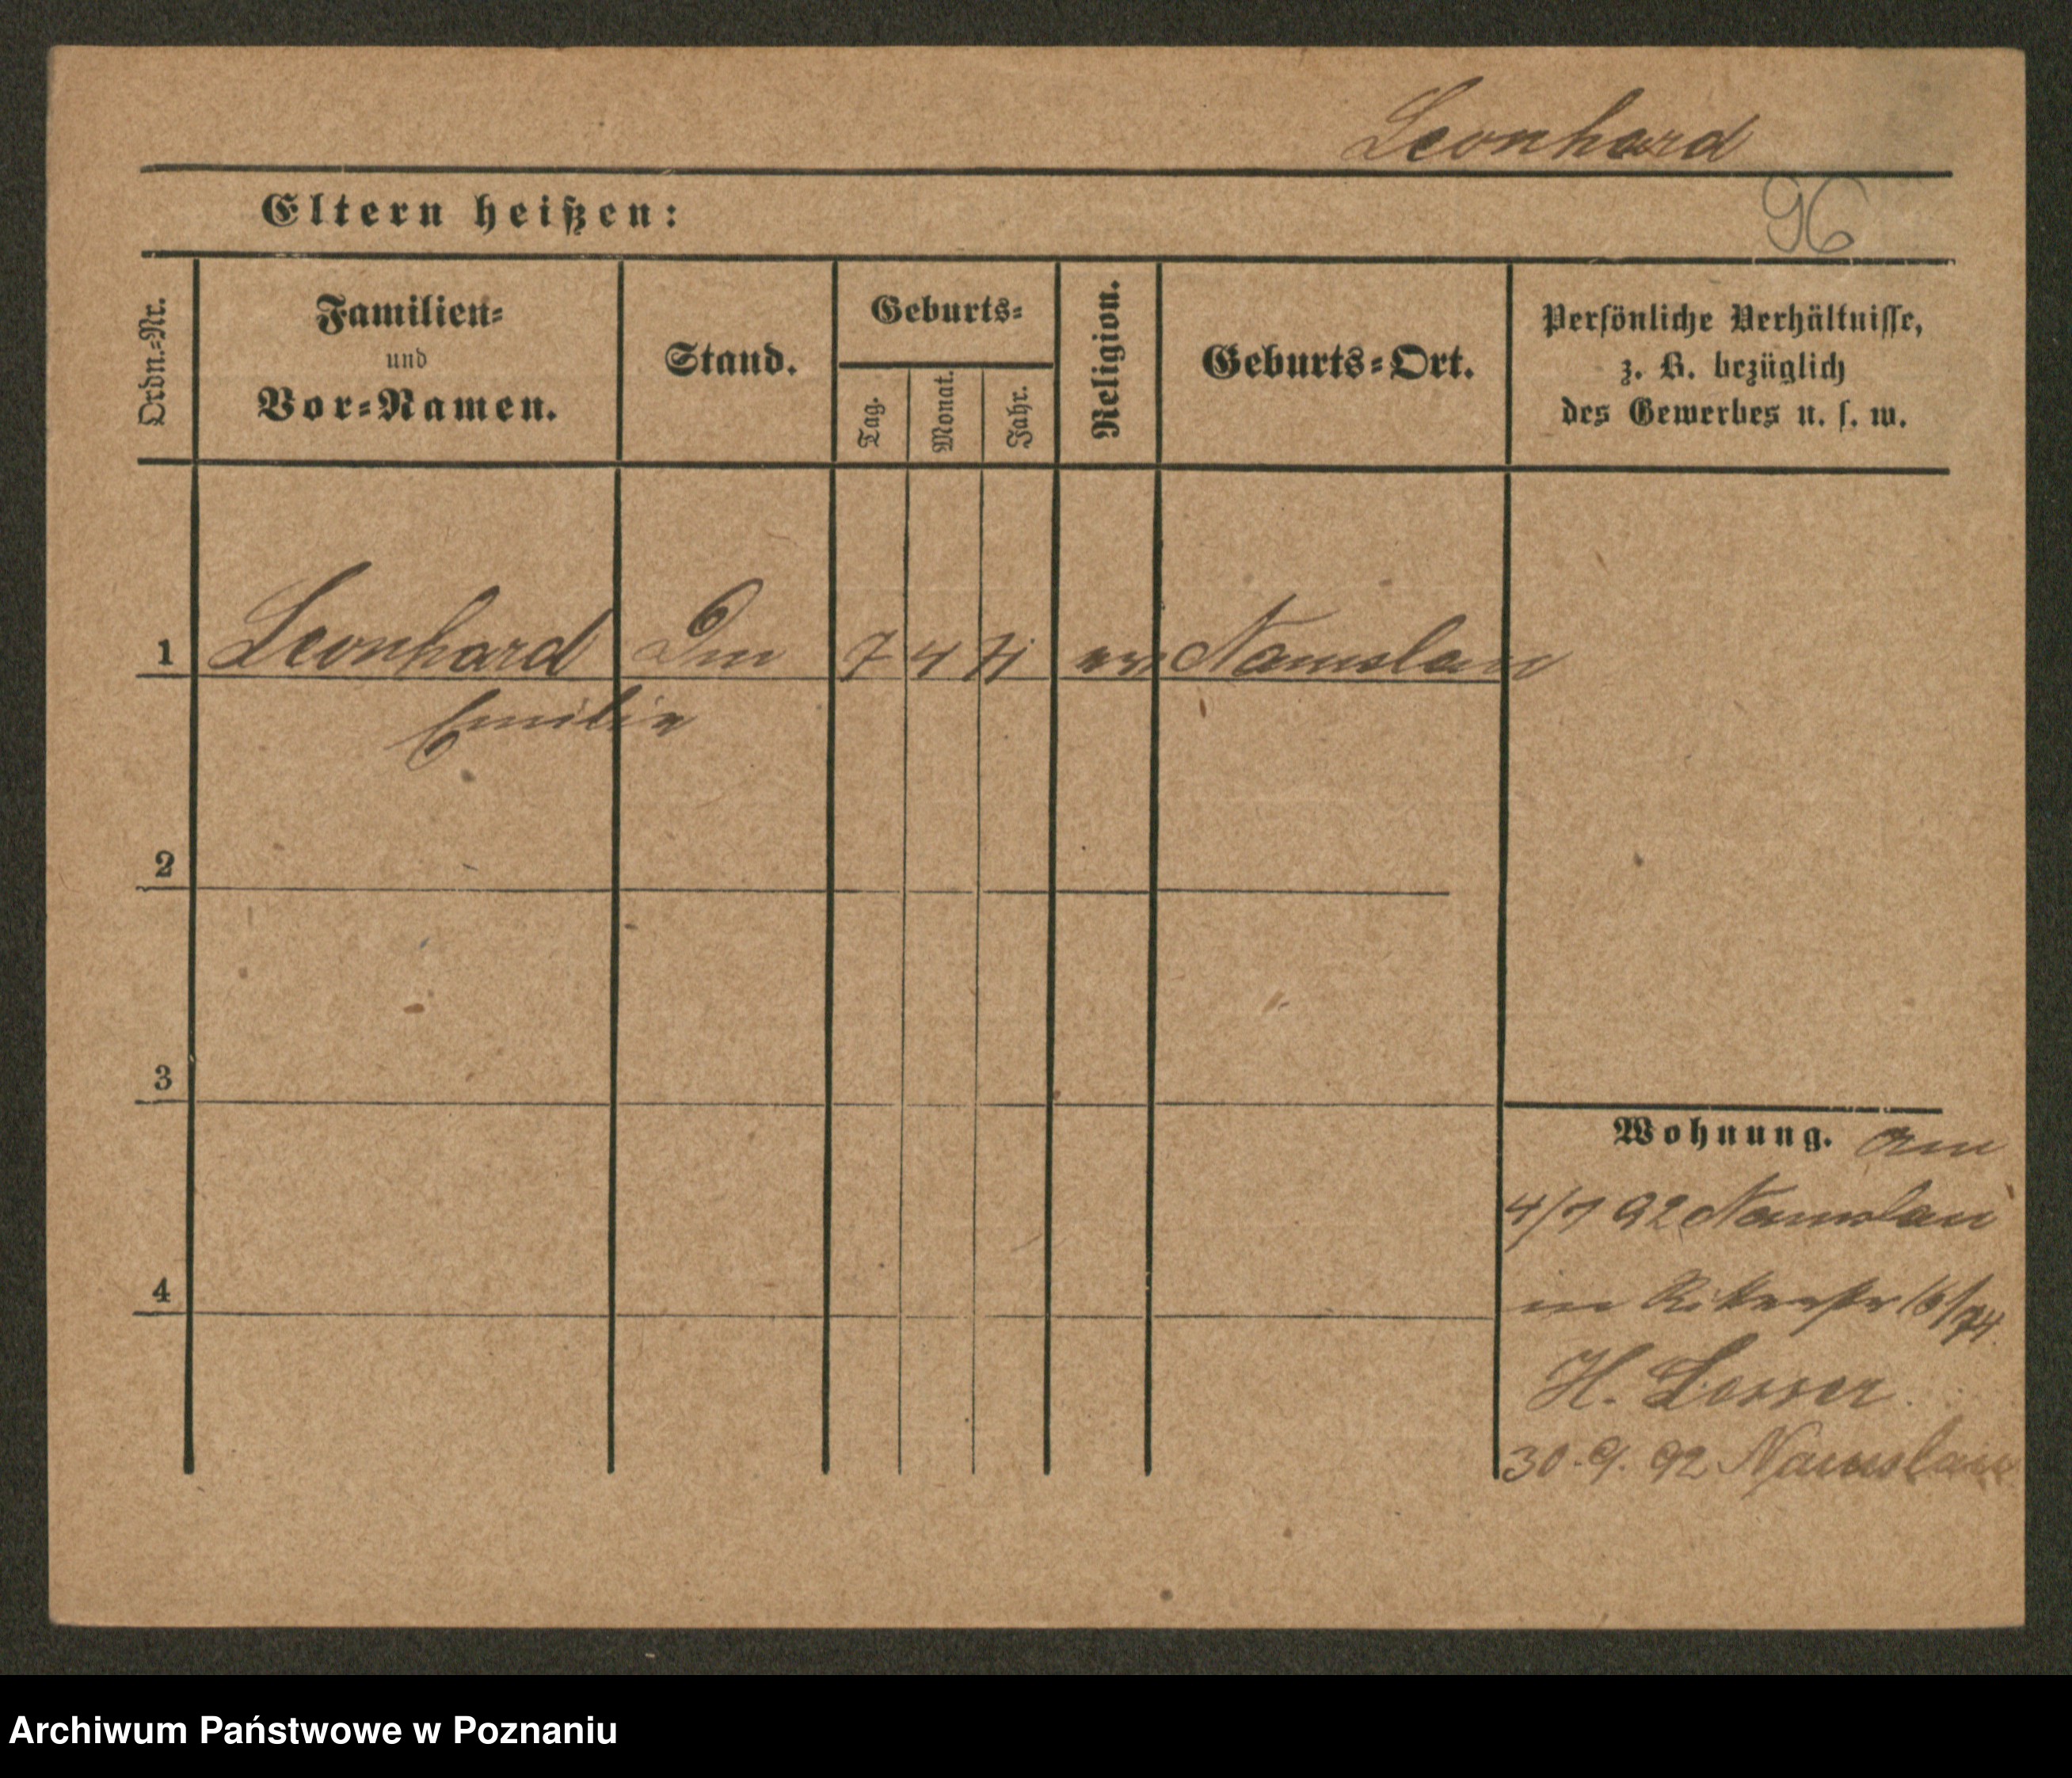 Leonhard
Eltern heißen:
96
Ordn.-Nr.
Familien-
und
Vor-Namen.
Stand.
Geburts-
Tag.
Monat.
Jahr.
Religion.
Geburts-Ort.
Persönliche Verhältnisse,
z. B. bezüglich
des Gewerbes u. s. w.
1 Leonhard 7 4 71 ev Namslau
Emilie
2
3
4
Wohnung. am
4/7 92 Namslau
in Ritterstr 16/
H. Lesser
30.9. 92 Namslau
Archiwum Państwowe w Poznaniu